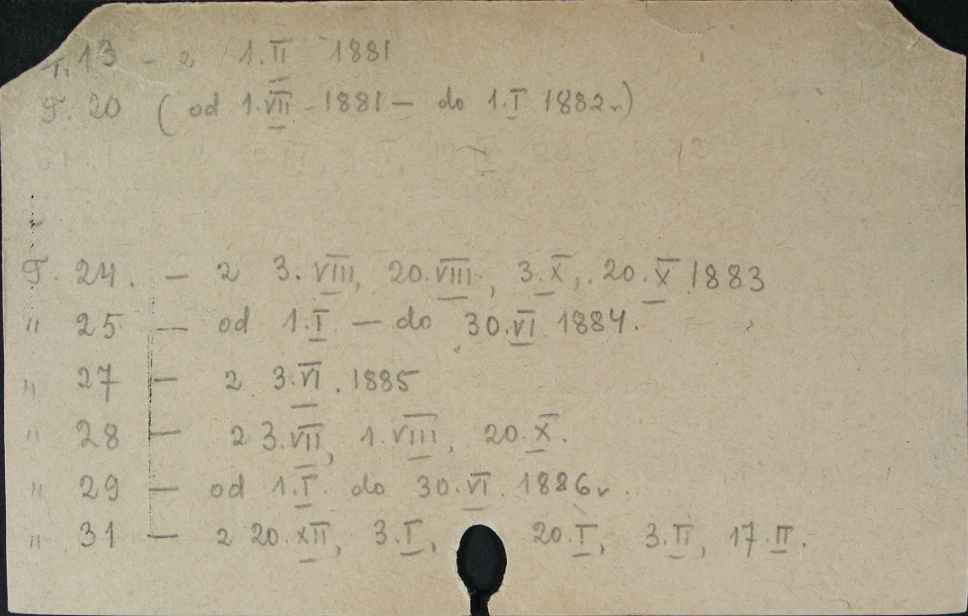 T. 13 - z 1.II 1881
T. 20 (od 1.VII - 1881 — do 1.I 1882r.)
T. 24. — z 3.VIII, 20.VIII, 3.X, 20.X 1883
" 25 — od 1.I — do 30.VI 1884.
" 27 — z 3.VI. 1885
" 28 — z 3.VII, 1.VIII, 20.X.
" 29 — od 1.I. do 30.VI. 1886r.
" 31 — z 20.XII, 3.I, 20.I, 3.II, 17.II.